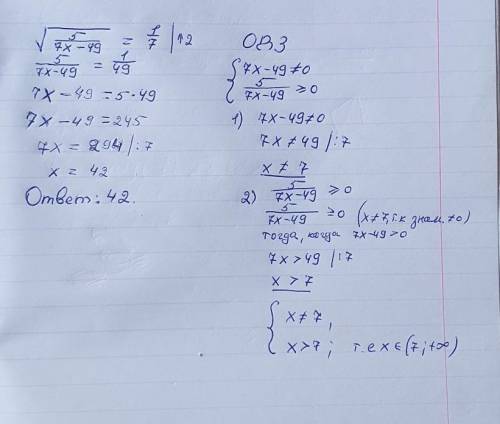 √(5/(7x-49)) = 1/7 |↑2
5/(7x-49) = 1/49
7x-49=5·49
7x-49=245
7x = 294 |:7
x = 42
Ответ: 42.
ОВЗ
{ 7x-49≠0
5/(7x-49) ≥0
1) 7x-49≠0
7x≠49 |:7
x≠7
2) 5/(7x-49) ≥0
5/(7x-49) ≥0 (x≠7, т.к знам. ≠0)
тогда, когда 7x-49>0
7x>49 |:7
x>7
{ x≠7,
x>7; т.е x∈(7;+∞)